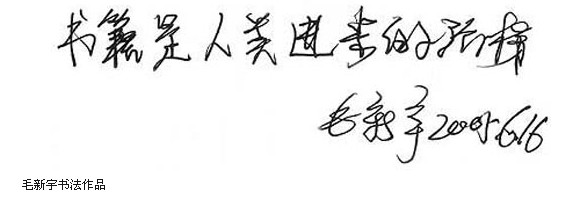 书籍是人类进步的阶梯
毛新宇 2005.6.16
毛新宇书法作品